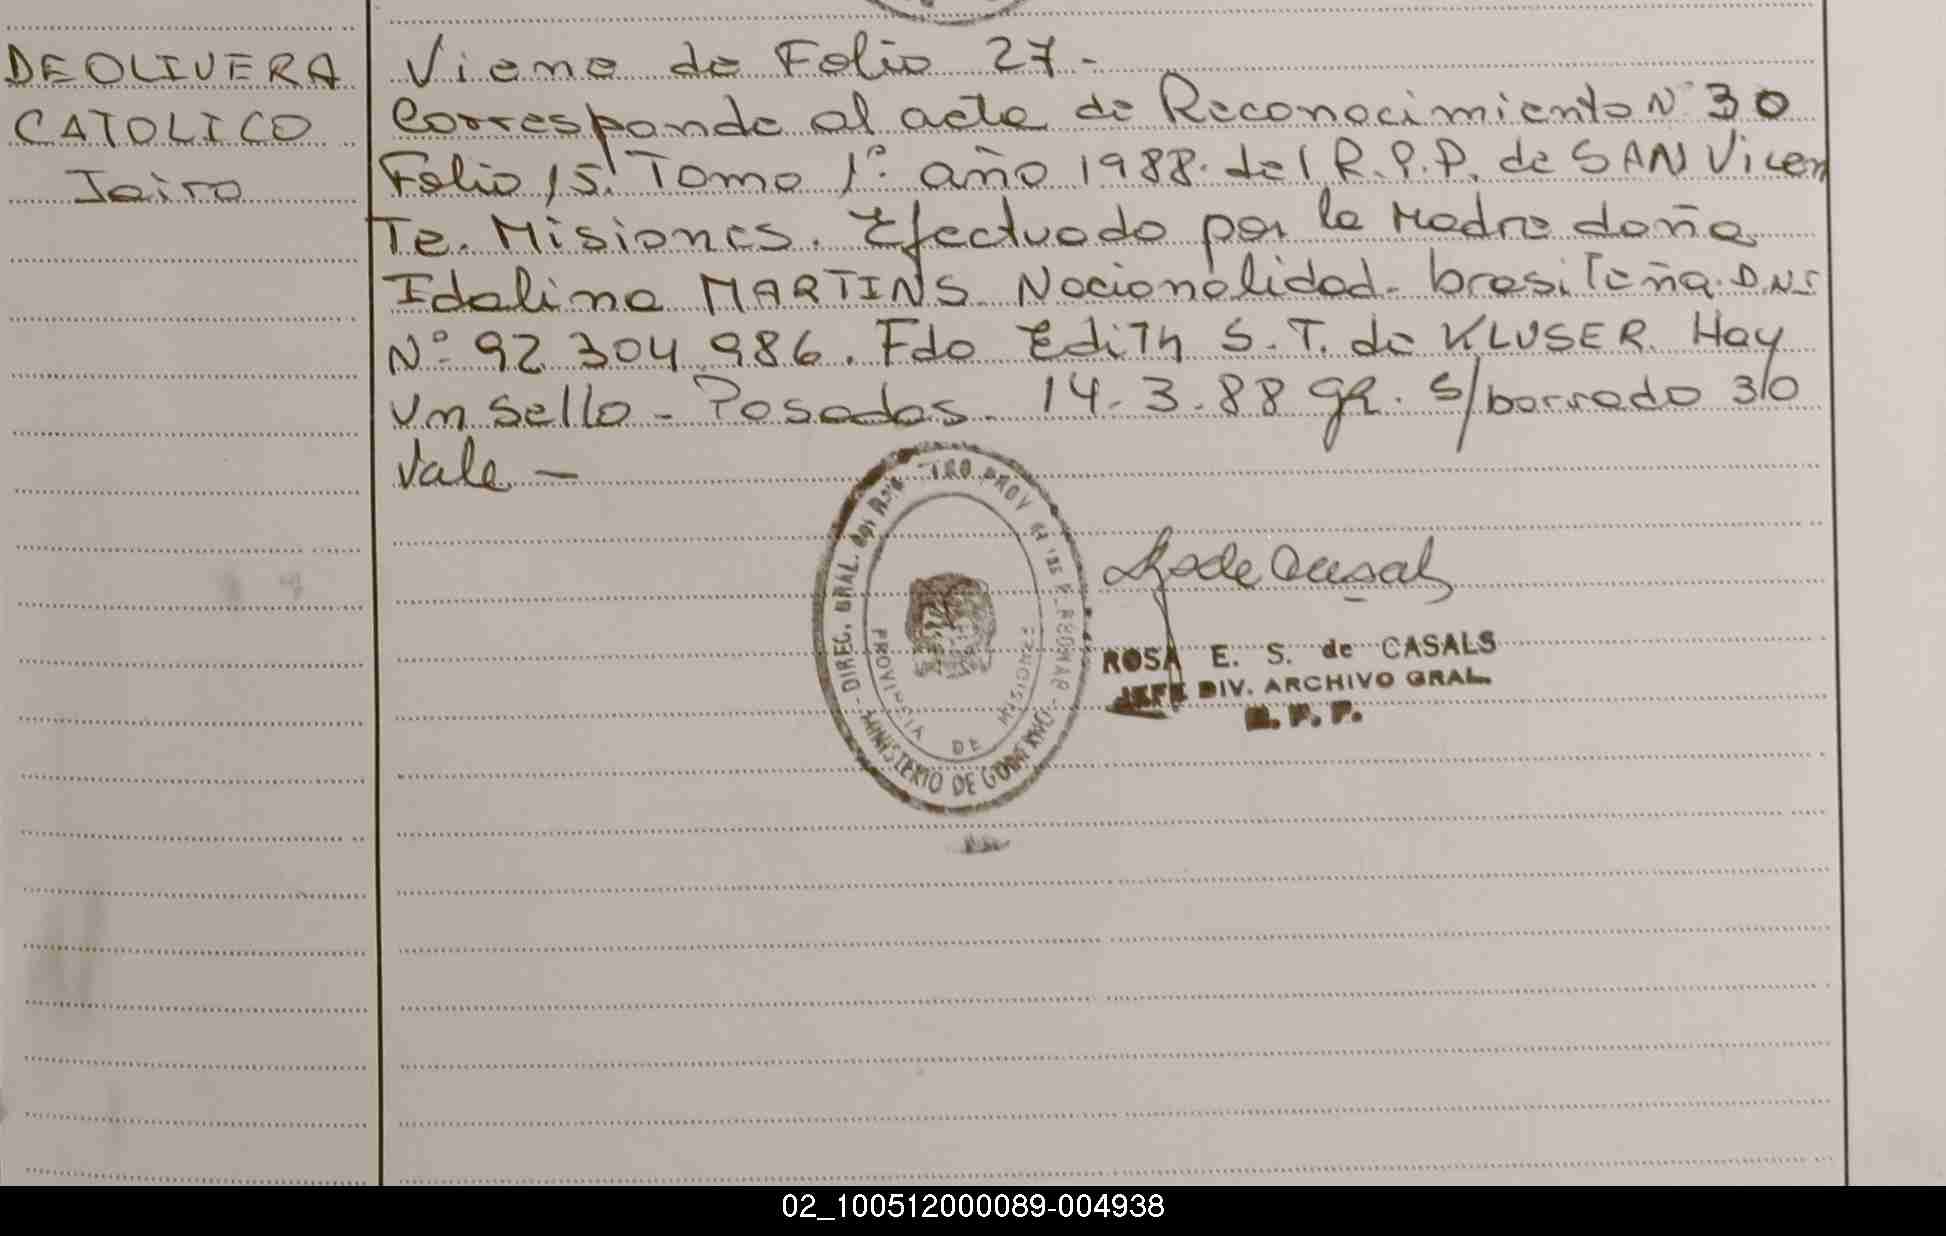 DE OLIVERA
CATOLICO
Jairo
Viene de Folio 27.-
Corresponde al acta de Reconocimiento Nº 30
Folio 15. Tomo 1º. año 1988. del R.P.P. de SAN Vicen
Te. Misiones. Efectuado por la Madre doña
Idalina MARTINS Nacionalidad. brasileña. D.N.I
Nº 92.304.986. Fdo Edith S. T. de KLUSER. Hay
un sello - Posadas. 14.3.88 gr. s/borrado 30
Vale. -
DIREC. GRAL. DEL PROV DE
MINISTERIO DE GOBIERNO
PROVINCIA DE MISIONES
ROSA E. S. de CASALS
JEFE DIV. ARCHIVO GRAL.
R. P. P.
02_100512000089-004938